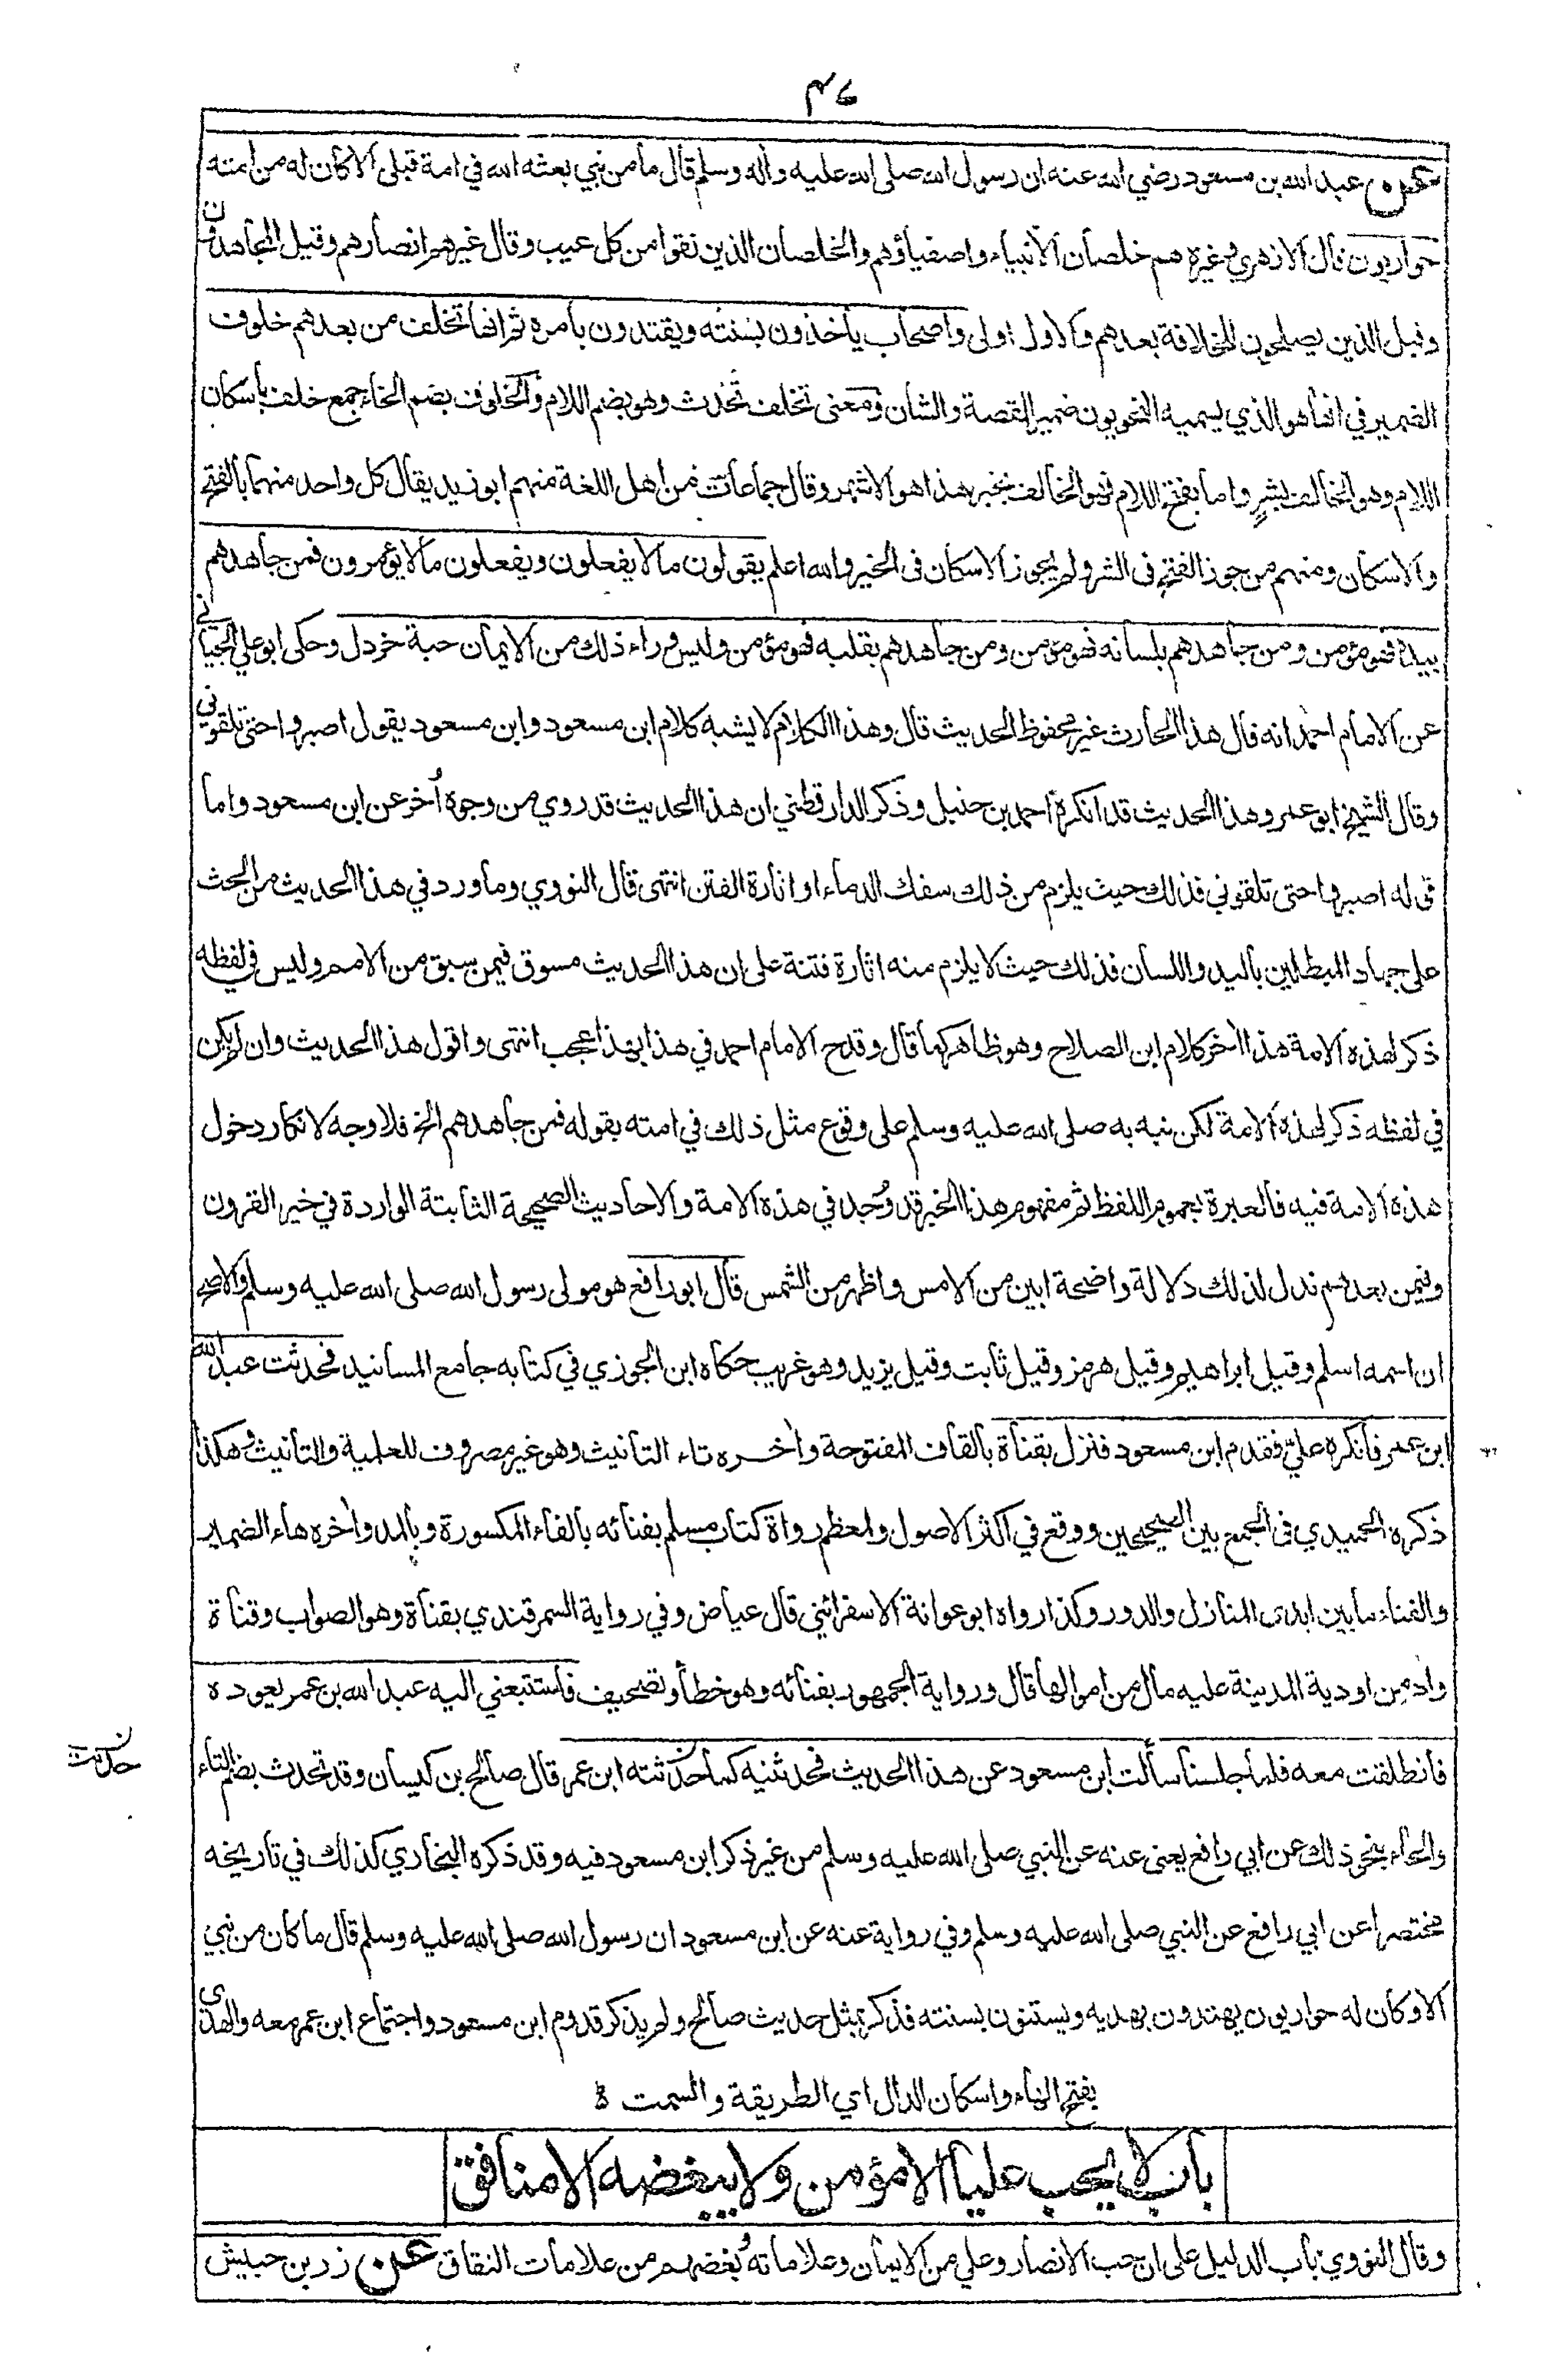 ٤٦
عن عبد الله بن مسعود رضي الله عنه ان رسول الله صلى الله عليه واله وسلم قال ما من نبي بعثه الله في امة قبلي الا كان له من امته
حواريون قال الازهري وغيره هم خلصان الانبياء واصفياؤهم والخلصان الذين نقوا من كل عيب وقال غيرهم انصارهم وقيل المجاهدون
وقيل الذين يصلحون للخلافة بعدهم والاول اولى واصحاب ياخذون بسنته ويقتدون بامره ثم انها تخلف من بعدهم خلوف
الضمير في انها هو الذي يسميه النحويون ضمير القصة والشان ومعنى تخلف تحدث وهو بضم اللام والخلوف بضم الخاء جمع خلف باسكان
اللام وهو الخالف بشر واما بفتح اللام فهو الخالف بخير هذا هو الاشهر وقال جماعات من اهل اللغة منهم ابو زيد يقال كل واحد منهما بالفتح
والاسكان ومنهم من جوز الفتح فى الشر ولم يجوز الاسكان فى الخير والله اعلم يقولون ما لا يفعلون ويفعلون ما لا يؤمرون فمن جاهدهم
بيده فهو مؤمن ومن جاهدهم بلسانه فهو مؤمن ومن جاهدهم بقلبه فهو مؤمن وليس وراء ذلك من الايمان حبة خردل وحكى ابو علي الجياني
عن الامام احمد انه قال هذا الحارث غير محفوظ الحديث قال وهذا الكلام لا يشبه كلام ابن مسعود وابن مسعود يقول اصبروا حتى تلقوني
وقال الشيخ ابو عمرو هذا الحديث قد انكره احمد بن حنبل وذكر الدارقطني ان هذا الحديث قد روي من وجوه اُخر عن ابن مسعود واما
قوله اصبروا حتى تلقوني فذلك حيث يلزم من ذلك سفك الدماء او اثارة الفتن انتهى قال النووي وما ورد في هذا الحديث من الحث
على جهاد المبطلين باليد واللسان فذلك حيث لا يلزم منه اثارة فتنة على ان هذا الحديث مسوق فيمن سبق من الامم وليس في لفظه
ذكر لهذه الامة هذا اٰخر كلام ابن الصلاح وهو ظاهر كما قال وقدح الامام احمد في هذا بهذا عجب انتهى واقول هذا الحديث وان لم يكن
في لفظه ذكر لهذه الامة لكن نبه به صلى الله عليه وسلم على وقوع مثل ذلك في امته بقوله فمن جاهدهم الخ فلا وجه لانكار دخول
هذه الامة فيه فالعبرة بعموم اللفظ ثم مفهوم هذا الخبر قد وُجد في هذه الامة والاحاديث الصحيحة الثابتة الواردة في خير القرون
وفيمن بعدهم تدل لذلك دلالة واضحة ابين من الامس واظهر من الشمس قال ابو رافع هو مولى رسول الله صلى الله عليه وسلم والاصح
ان اسمه اسلم وقيل ابراهيم وقيل هرمز وقيل ثابت وقيل يزيد وهو غريب حكاه ابن الجوزي في كتابه جامع المسانيد فحدثت عبد الله
ابن عمر فانكره عليّ فقدم ابن مسعود فنزل بقناة بالقاف المفتوحة واٰخره تاء التانيث وهو غير مصروف للعلمية والتانيث وهكذا
ذكره الحميدي فى الجمع بين الصحيحين ووقع في اكثر الاصول ولمعظم رواة كتاب مسلم بفنائه بالفاء المكسورة وبالمد واٰخره هاء الضمير
والفناء ما بين ايدى المنازل والدور وكذا رواه ابو عوانة الاسفرائني قال عياض وفي رواية السمرقندي بقناة وهو الصواب وقناة
واد من اودية المدينة عليه مال من اموالها قال ورواية الجمهور بفنائه وهو خطأ وتصحيف فاستتبعني اليه عبد الله بن عمر يعوده
فانطلقت معه فلما جلسنا سالت ابن مسعود عن هذا الحديث فحدثنيه كما حدثته ابن عمر قال صالح بن كيسان وقد تحدث بضم التاء
حدثت ن
والحاء بنحو ذلك عن ابي رافع يعنى عنه عن النبي صلى الله عليه وسلم من غير ذكر ابن مسعود فيه وقد ذكره البخاري كذلك في تاريخه
مختصرا عن ابي رافع عن النبي صلى الله عليه وسلم وفي رواية عنه عن ابن مسعود ان رسول الله صلى الله عليه وسلم قال ما كان من نبي
الا وكان له حواريون يهتدون بهديه ويستنون بسنته فذكر بمثل حديث صالح ولم يذكر قدوم ابن مسعود واجتماع ابن عمر معه والهدى
بفتح الهاء واسكان الدال اي الطريقة والسمت
باب لا يحب عليا الا مؤمن ولا يبغضه الا منافق
وقال النووي باب الدليل على ان حب الانصار وعلي من الايمان وعلاماته وبُغضهم من علامات النفاق عن زر بن حبيش